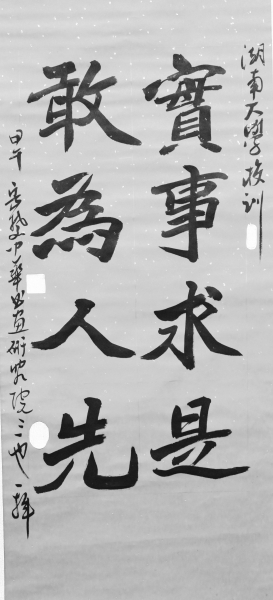 湖南大學校訓
實事求是
敢為人先
甲午 岳麓中華書畫研究院三也一拜